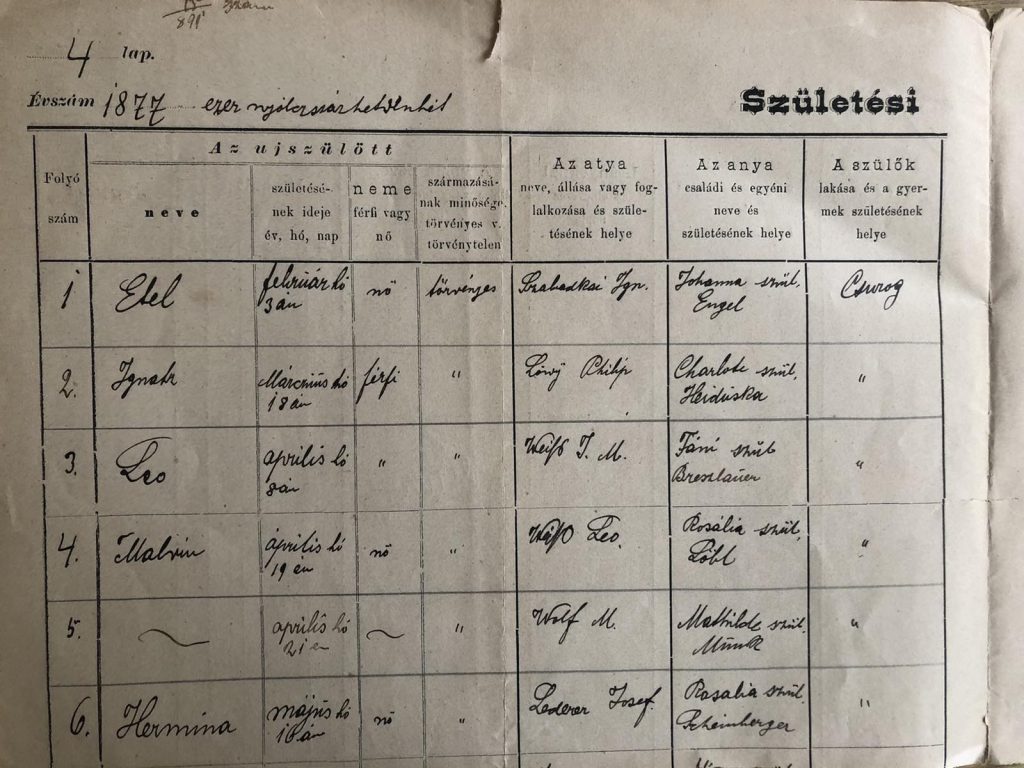 IV
891 szám
4 lap.
Évszám 1877 ezer nyolcszázhetvenhét
Születési
Folyó
szám
Az ujszülött
neve
születésé-
nek ideje
év, hó, nap
neme
férfi vagy
nő
származásá-
nak minősége,
törvényes v.
törvénytelen
Az atya
neve, állása vagy fog-
lalkozása és szüle-
tésének helye
Az anya
családi és egyéni
neve és
születésének helye
A szülők
lakása és a gyer-
mek születésének
helye
1
Etel
február hó
3 án
nő
törvényes
Szabadkai Ign.
Johanna szül.
Engel
Csurog
2.
Ignatz
Március hó
18 án
férfi
"
Löwy Philip
Charlote szül.
Heiduska
"
3.
Leo
április hó
8 án
"
"
Weiß J. M.
Fáni szül
Breszlauer
"
4.
Malvin
április hó
19 en
nő
"
Weiß Leo.
Rosália szül.
Löbl
"
5.
április hó
21 en
"
Wolf M.
Mathilde szül.
Munk
"
6.
Hermina
május hó
10 án
nő
"
Lederer Josef.
Rosalia szül.
Scheinberger
"